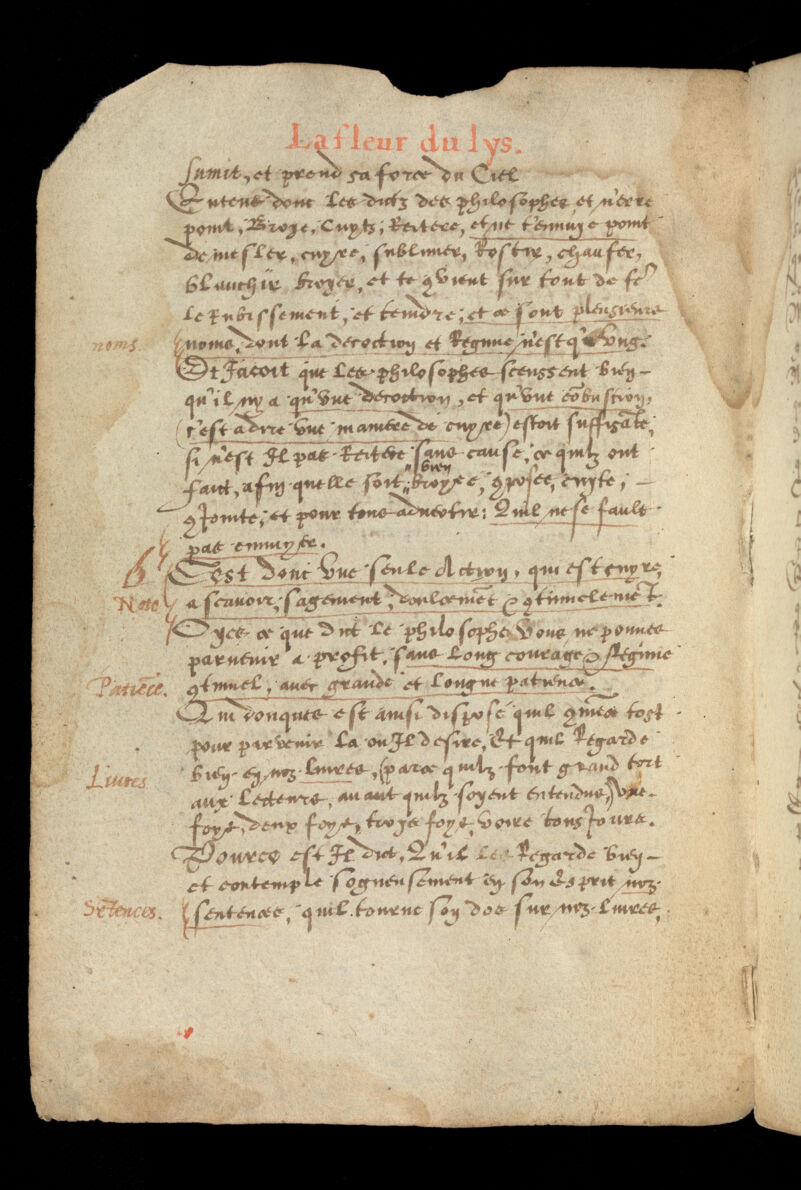 La fleur du lys.
sumit, et prend sa force du Ciel
Entens donc les dictz des philosophes, et n'erre
point, Broye, Cuytz, Reitere, et ne t'ennuye point
de mesler, cuyre, sublimer, Rostir, chaufer,
blanchir broyer, et te qvient sur tout de fē
le Rubissement, et teindre; et ce sont plusieurs
noms
noms, dont la decoction et Regime n'est q' Ung.
Et Jacoit que les philosophes sceussent bien
qu'il ny a qu'vne decoction, et qu'vne cōbustion,
(c'est adire vne maniere de cuyre) estoit suffisāte,
si n'est Il pas Reitere sans cause, ce quilz ont
faict, afin quelle soit bien broyee, qposee, cuyte,
qJointe; et pour tous advertir: Quil ne se fault
pas ennuyer.
6
C'est donc Vne seule Action, qui est cuyre,
Note
a scavoir, sagement, doulcemēt & qtinuelemēt.
Oyes ce que dict le philosophe, Vous ne pouues
parvenir a profit, sans long courage & Regime
Patiēce.
qtinuel, avec grande et longue patience.
Qui donques est ainsi disposé quil qmēce tost
pour parvenir la ou Il desire, Et quil Regarde
Liures
bien en noz liures, (parce quilz font grand tort
aux lecteurs, avant quilz soyent entendus,) vne
foys, deux foys, troys foys, voire tous Jours.
Pource est Il dict, Qu'il les Regarde bien
et contemple sogneusement en son Esprit noz
Sētences.
sentences, quil tourne son dos sur noz liures,